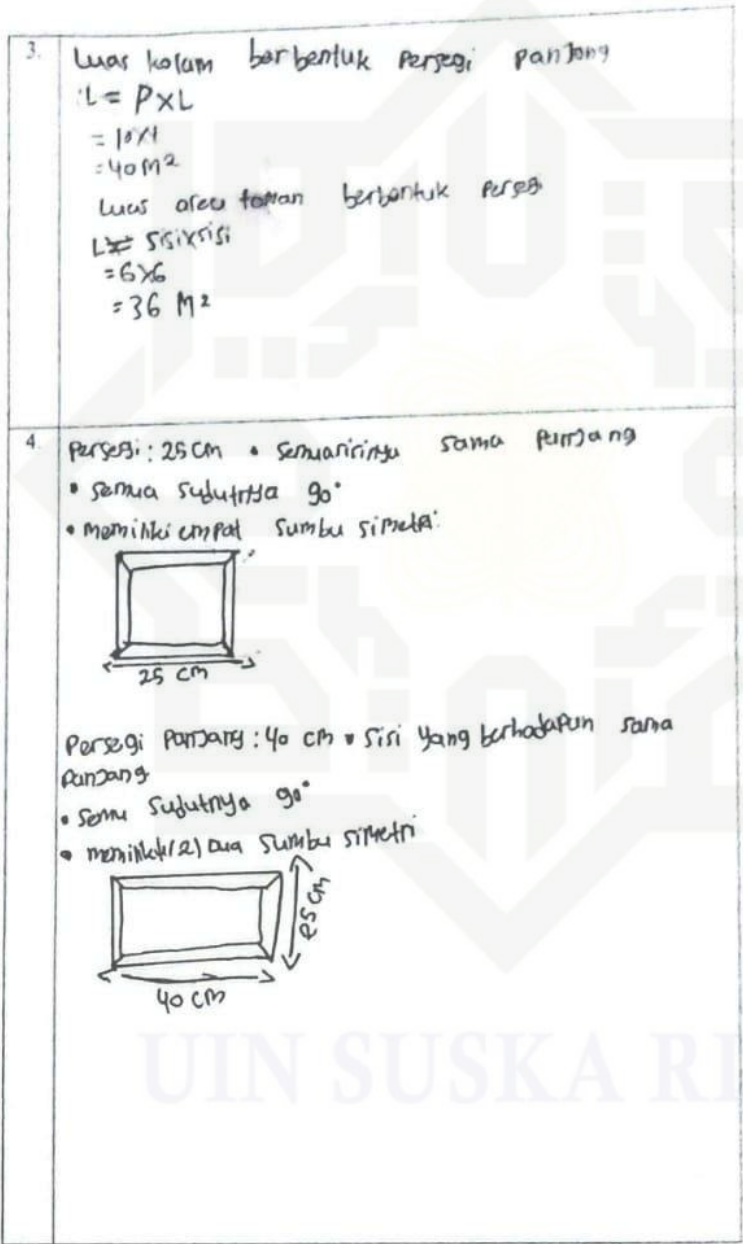 3.
Luas kolam berbentuk Persegi panjang
L = P x L
= 10x4
= 40 M²
Luas area taman berbentuk Persegi
L = sisixsisi
= 6x6
= 36 M²
4.
Persegi : 25 cm • semuasisinya sama panjang
• semua sudutnya 90°
• memiliki empat sumbu simetri
25 cm
Persegi Panjang : 40 cm • sisi yang berhadapan sama
panjang
• semu sudutnya 90°
• memiliki (2) Dua sumbu simetri
25 cm
40 cm
UIN SUSKA RI